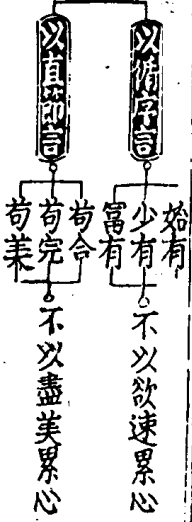 以循序言
始有
少有
富有
不以欲速累心
以直節言
苟合
苟完
苟美
不以盡美累心